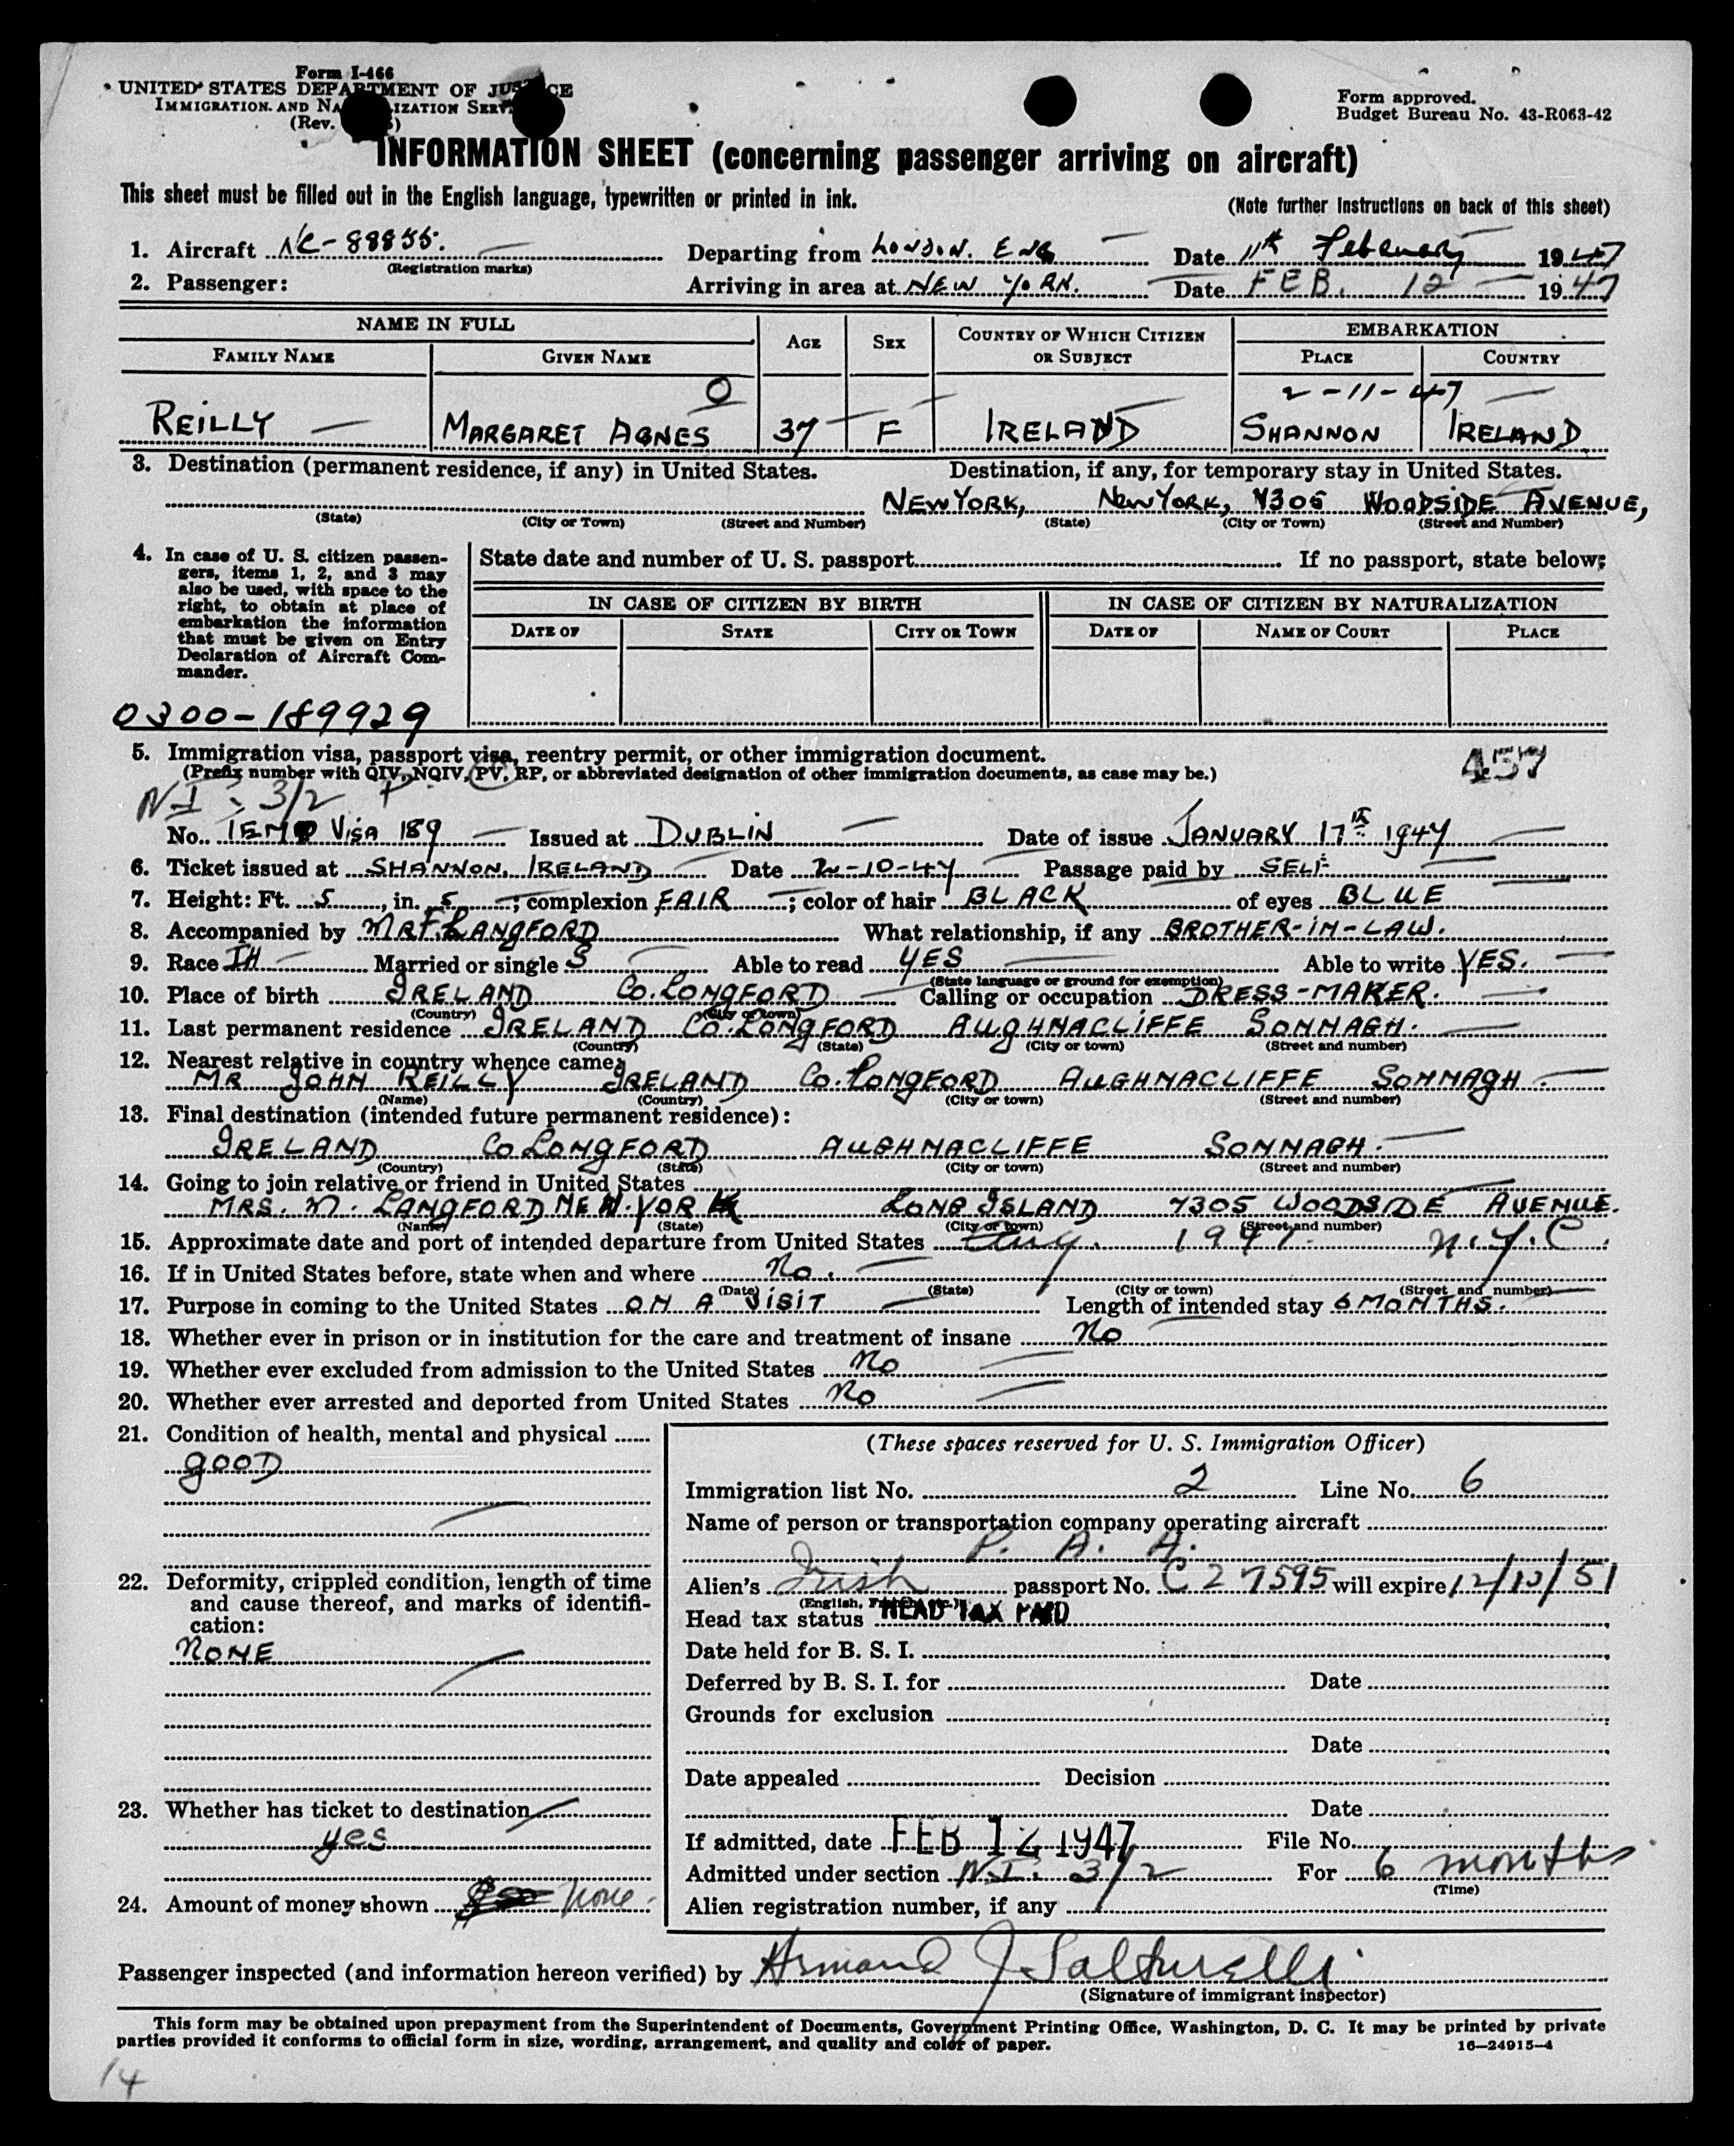 Form I-466
UNITED STATES DEPARTMENT OF JUSTICE
IMMIGRATION AND NATURALIZATION SERVICE
(Rev.
Form approved.
Budget Bureau No. 43-R063-42
INFORMATION SHEET (concerning passenger arriving on aircraft)
This sheet must be filled out in the English language, typewritten or printed in ink.
(Note further instructions on back of this sheet)
1. Aircraft NC-88855. Departing from LONDON. ENG Date 11th February 1947
(Registration marks)
2. Passenger: Arriving in area at NEW YORK. Date FEB. 12 1947
NAME IN FULL AGE SEX COUNTRY OF WHICH CITIZEN OR SUBJECT EMBARKATION
FAMILY NAME GIVEN NAME PLACE COUNTRY
O 2-11-47
REILLY MARGARET AGNES 37 F IRELAND SHANNON IRELAND
3. Destination (permanent residence, if any) in United States. Destination, if any, for temporary stay in United States.
NEW YORK, NEW YORK, 7305 WOODSIDE AVENUE,
(State) (City or Town) (Street and Number) (State) (City or Town) (Street and Number)
4. In case of U. S. citizen passengers, items 1, 2, and 3 may also be used, with space to the right, to obtain at place of embarkation the information that must be given on Entry Declaration of Aircraft Commander.
State date and number of U. S. passport If no passport, state below:
IN CASE OF CITIZEN BY BIRTH IN CASE OF CITIZEN BY NATURALIZATION
DATE OF STATE CITY OR TOWN DATE OF NAME OF COURT PLACE
0300-189929
5. Immigration visa, passport visa, reentry permit, or other immigration document.
(Prefix number with QIV, NQIV, PV, RP, or abbreviated designation of other immigration documents, as case may be.)
457
N I : 3/2 P
No. TEMP VISA 189 Issued at DUBLIN Date of issue JANUARY 17th 1947
6. Ticket issued at SHANNON, IRELAND Date 2-10-47 Passage paid by SELF
7. Height: Ft. 5, in. 5; complexion FAIR; color of hair BLACK of eyes BLUE
8. Accompanied by MR F. LANGFORD What relationship, if any BROTHER-IN-LAW.
9. Race IH Married or single S Able to read YES Able to write YES.
(State language or ground for exemption)
10. Place of birth IRELAND CO. LONGFORD Calling or occupation DRESS-MAKER.
(Country) (City or town)
11. Last permanent residence IRELAND CO. LONGFORD AUGHNACLIFFE SONNAGH.
(Country) (State) (City or town) (Street and number)
12. Nearest relative in country whence came:
MR JOHN REILLY IRELAND CO. LONGFORD AUGHNACLIFFE SONNAGH.
(Name) (Country) (City or town) (Street and number)
13. Final destination (intended future permanent residence):
IRELAND CO LONGFORD AUGHNACLIFFE SONNAGH.
(Country) (State) (City or town) (Street and number)
14. Going to join relative or friend in United States
MRS. M. LANGFORD NEW YORK LONG ISLAND 7305 WOODSIDE AVENUE.
(Name) (State) (City or town) (Street and number)
15. Approximate date and port of intended departure from United States Aug. 1947. N.Y.C.
16. If in United States before, state when and where No.
(Date) (State) (City or town) (Street and number)
17. Purpose in coming to the United States ON A VISIT Length of intended stay 6 MONTHS.
18. Whether ever in prison or in institution for the care and treatment of insane No
19. Whether ever excluded from admission to the United States No
20. Whether ever arrested and deported from United States No
21. Condition of health, mental and physical
GOOD
22. Deformity, crippled condition, length of time and cause thereof, and marks of identification:
NONE
23. Whether has ticket to destination
yes
24. Amount of money shown None.
(These spaces reserved for U. S. Immigration Officer)
Immigration list No. 2 Line No. 6
Name of person or transportation company operating aircraft
P. A. A.
Alien's Irish passport No. C 27595 will expire 12/13/51
(English, French, etc.)
Head tax status HEAD TAX PAID
Date held for B. S. I.
Deferred by B. S. I. for Date
Grounds for exclusion
Date
Date appealed Decision
Date
If admitted, date FEB 12 1947 File No.
Admitted under section N.I. 3/2 For 6 months
(Time)
Alien registration number, if any
Passenger inspected (and information hereon verified) by Armand J.
(Signature of immigrant inspector)
This form may be obtained upon prepayment from the Superintendent of Documents, Government Printing Office, Washington, D. C. It may be printed by private
parties provided it conforms to official form in size, wording, arrangement, and quality and color of paper. 16—24915-4
14